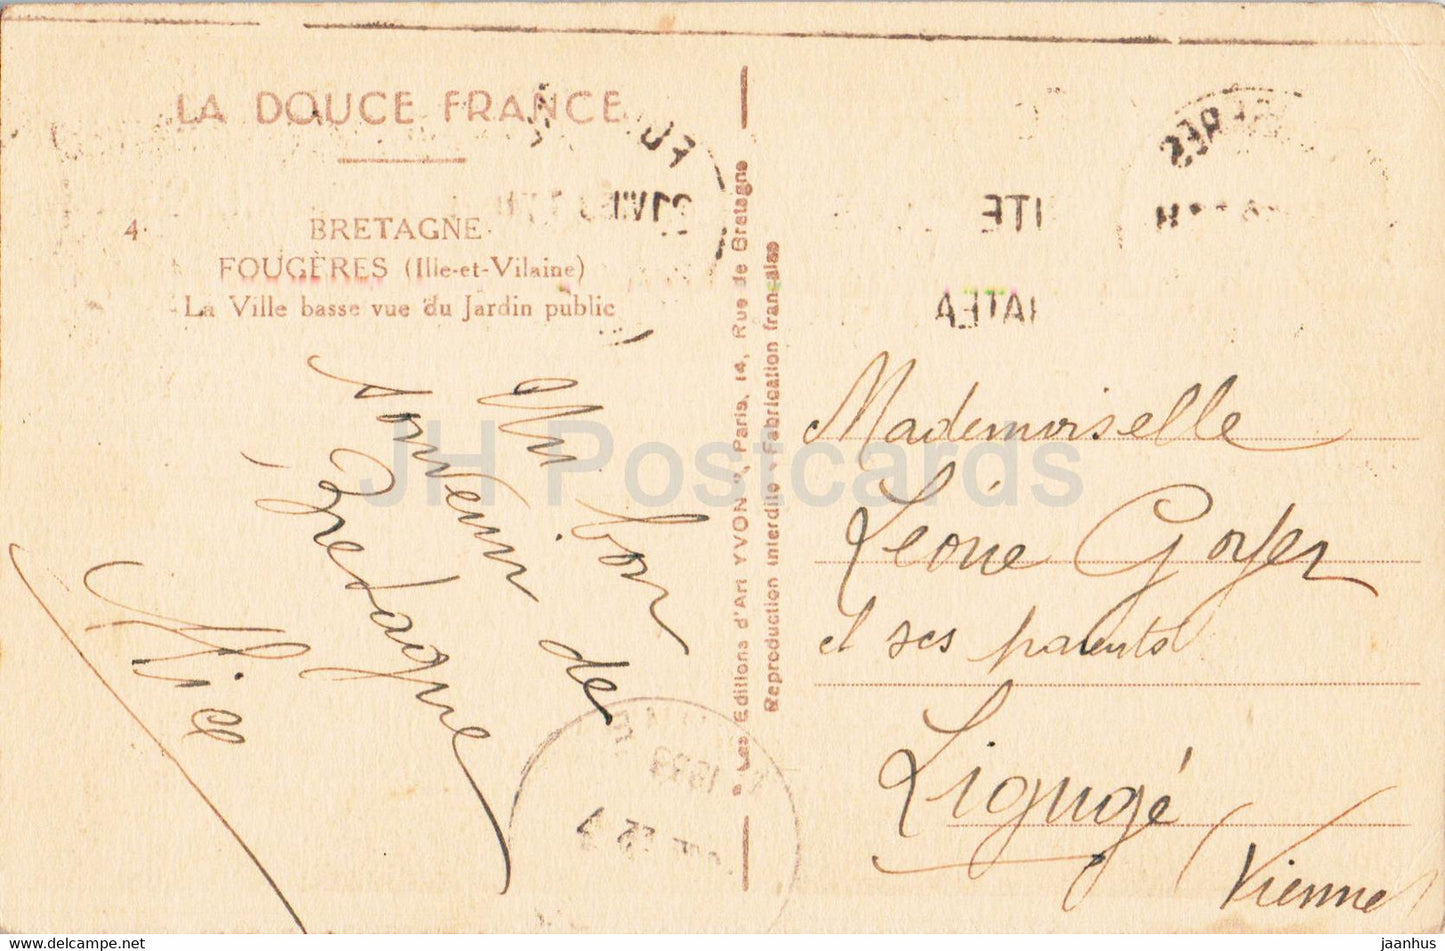 LA DOUCE FRANCE
4. BRETAGNE
FOUGÈRES (Ille-et-Vilaine)
La Ville basse vue du Jardin public
Un bon
souvenir de
Bretagne
Alice
Les Editions d'Art YVON, Paris, 14, Rue de Bretagne
Reproduction interdite - Fabrication française
Mademoiselle
Léonie Goyer
et ses parents
Ligugé
Vienne
1939
JH Postcards
www.delcampe.net
jaanhus